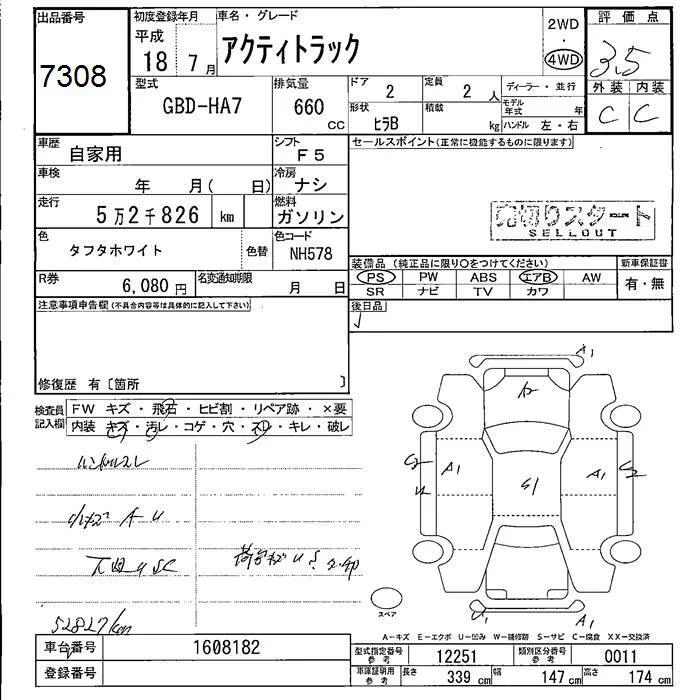 出品番号
7308
初度登録年月
平成
18 7月
車名・グレード
アクティトラック
2WD
・
4WD
評価点
3.5
外装 内装
C C
型式
GBD-HA7
排気量
660 CC
ドア 2
定員 2人
形状 ヒラB
積載 kg
ディーラー・並行
モデル年式 年
ハンドル 左・右
車歴
自家用
シフト
F5
セールスポイント(正常に機能するものに限ります)
車検
年 月( 日)
冷房
ナシ
走行
5万2千826 km
燃料
ガソリン
売切りスタート
SELLOUT
色
タフタホワイト
色替
色コード
NH578
装備品 (純正品に限り○をつけてください)
新車保証書
PS PW ABS エアB AW
有・無
SR ナビ TV カワ
R券
6,080円
名変通知期限
月 日
後日品
注意事項申告欄(不具合内容等は具体的に記入して下さい)
修復歴 有〔箇所 〕
検査員記入欄
FW キズ・飛石・ヒビ割・リペア跡・×要
内装 キズ・汚レ・コゲ・穴・スレ・キレ・破レ
ハンドルスレ
A U
52827km
A1
A1
A1
S1
U1
A1
スペア
A-キズ E-エクボ U-凹み W-補修跡 S-サビ C-腐食 XX-交換済
車台番号
1608182
登録番号
型式指定番号 参考
12251
類別区分番号 参考
0011
車庫証明用 参考
長さ 339 cm
幅 147 cm
高さ 174 cm